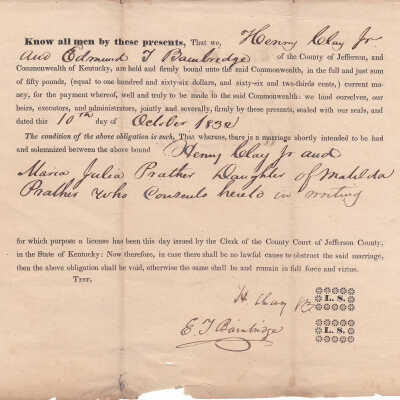 Know all men by these presents, That we, Henry Clay Jr
and Edmund T Bainbridge of the County of Jefferson, and
Commonwealth of Kentucky, are held and firmly bound unto the said Commonwealth, in the full and just sum
of fifty pounds, (equal to one hundred and sixty-six dollars, and sixty-six and two-thirds cents,) current mo-
ney, for the payment whereof, well and truly to be made to the said Commonwealth: we bind ourselves, our
heirs, executors, and administrators, jointly and severally, firmly by these presents, sealed with our seals, and
dated this 10th day of October 1832
The condition of the above obligation is such, That whereas, there is a marriage shortly intended to be had
and solemnized between the above bound Henry Clay Jr and
Maria Julia Prather Daughter of Matilda
Prather who Consents hereto in writing
for which purpose a license has been this day issued by the Clerk of the County Court of Jefferson County,
in the State of Kentucky: Now therefore, in case there shall be no lawful cause to obstruct the said marriage,
then the above obligation shall be void, otherwise the same shall be and remain in full force and virtue.
Test,
H Clay Jr L. S.
E. T Bainbridge L. S.